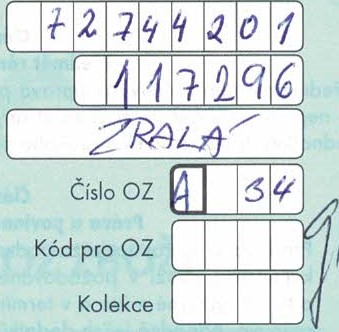 72744201
117296
ZRALÁ
Číslo OZ A 34
Kód pro OZ
Kolekce